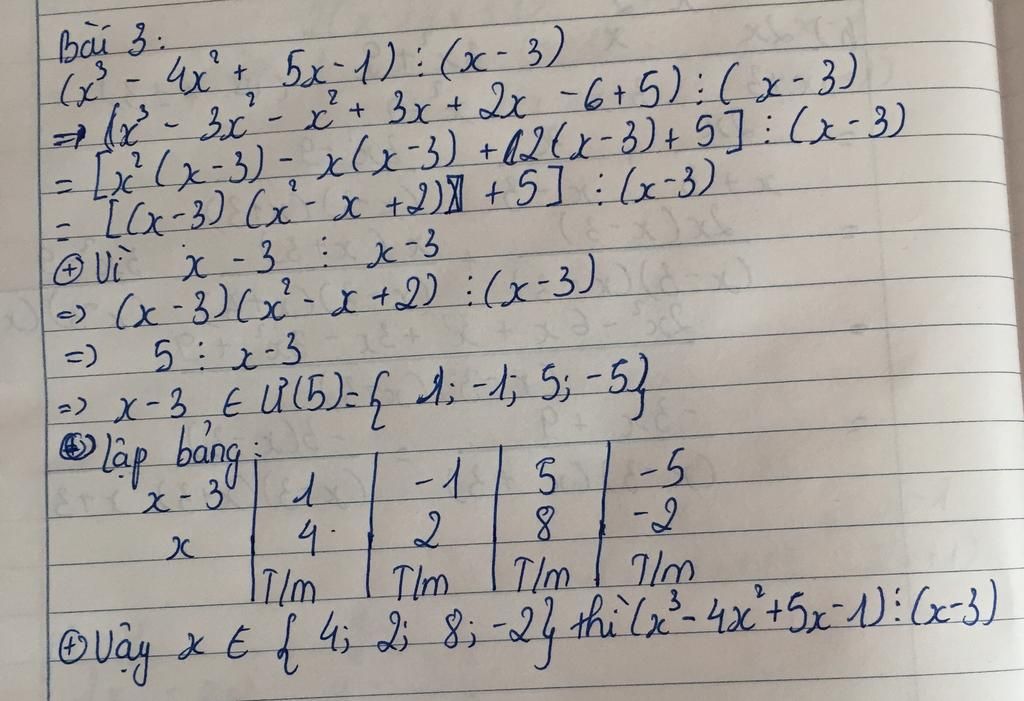 Bài 3:
(x³ - 4x² + 5x - 1) ⋮ (x - 3)
=> (x³ - 3x² - x² + 3x + 2x - 6 + 5) ⋮ (x - 3)
= [x² (x - 3) - x(x - 3) + 2(x - 3) + 5] ⋮ (x - 3)
= [(x - 3) (x² - x + 2) + 5] ⋮ (x - 3)
⊕ Vì x - 3 ⋮ x - 3
=> (x - 3)(x² - x + 2) ⋮ (x - 3)
=> 5 ⋮ x - 3
=> x - 3 ∈ Ư(5) = { 1; -1; 5; -5}
⊕ lập bảng:
x - 3 | 1 | -1 | 5 | -5
x | 4 | 2 | 8 | -2
T/m | T/m | T/m | T/m
⊕ Vậy x ∈ { 4; 2; 8; -2} thì (x³ - 4x² + 5x - 1) ⋮ (x - 3)